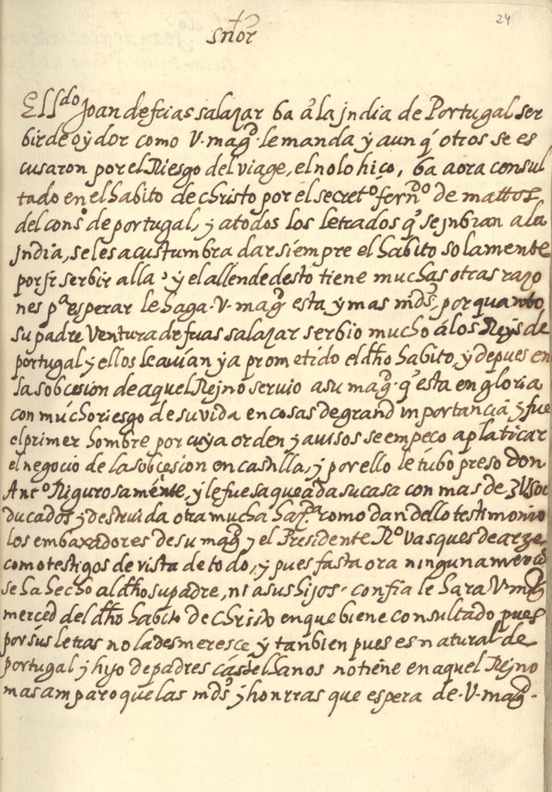 24
+
Snor
El ldo Joan de frias salazar ba a la India de Portugal ser
bir de oydor como V. magd. le manda y aunq otros se es
cusaron por el Riesgo del viage, el no lo hico, ba aora consul
tado en el habito de christo por el secreto ferndo de mattos,
del conso de portugal, y a todos los letrados q se inbian a la
India, se les acustumbra dar siempre el habito solamente
por ir serbir alla, y el allende desto tiene muchas otras razo
nes pa esperar le haga V. magd esta y mas mds, por quanto
su padre Ventura de frias salazar serbio mucho a los Reys de
portugal y ellos le avian ya prometido el dho habito, y depues en
la sobcesion de aquel Reyno servio a su magd q esta en gloria
con mucho riesgo de su vida en cosas de grand inportancia y fue
el primer hombre por cuya orden y avisos se empeço a platicar
el negocio de la sobcesion en castilla, y por ello le tubo preso don
Anto Rigurosamente, y le fue saqueada su casa con mas de
ducados y destruida otra mucha hazda como dan dello testimonio
los embaxadores de su magd y el Presidente Ro Vasques de arze,
como testigos de vista de todo, y pues fasta ora ninguna merced
se ha hecho al dho su padre, ni a sus hijos. confia le hara V. magd
merced del dho habito de Christo en que biene consultado pues
por sus letras no la desmeresce y tanbien pues es natural de
portugal y hijo de padres castelhanos no tiene en aquel Reyno
mas amparo que las mds y honrras que espera de V. magd.